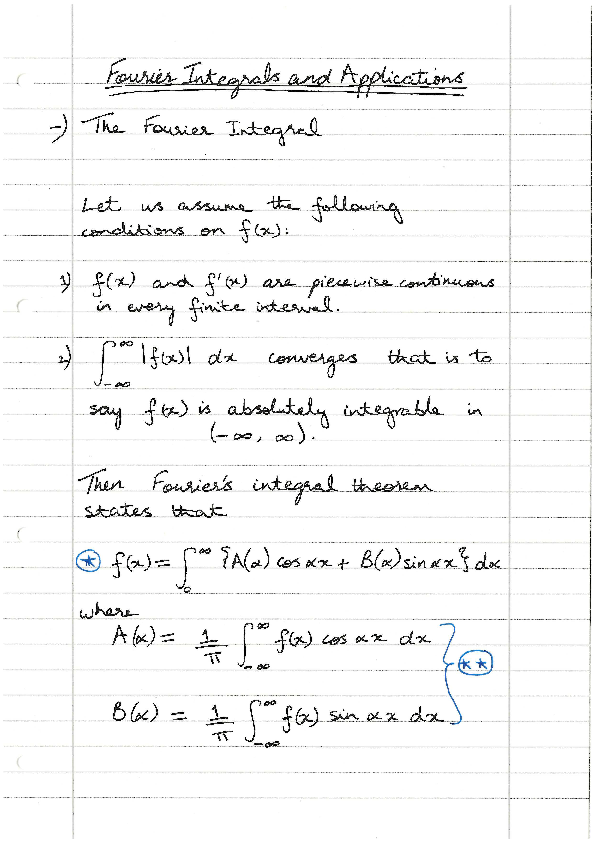 Fourier Integrals and Applications
-) The Fourier Integral
Let us assume the following
conditions on f(x):
1) f(x) and f'(x) are piecewise continuous
in every finite interval.
2) ∫_{-∞}^{∞} |f(x)| dx converges that is to
say f(x) is absolutely integrable in
(-∞, ∞).
Then Fourier's integral theorem
states that
★ f(x) = ∫_0^∞ {A(α) cos αx + B(α) sin αx} dα
where
A(α) = 1/π ∫_{-∞}^{∞} f(x) cos αx dx
★★
B(α) = 1/π ∫_{-∞}^{∞} f(x) sin αx dx